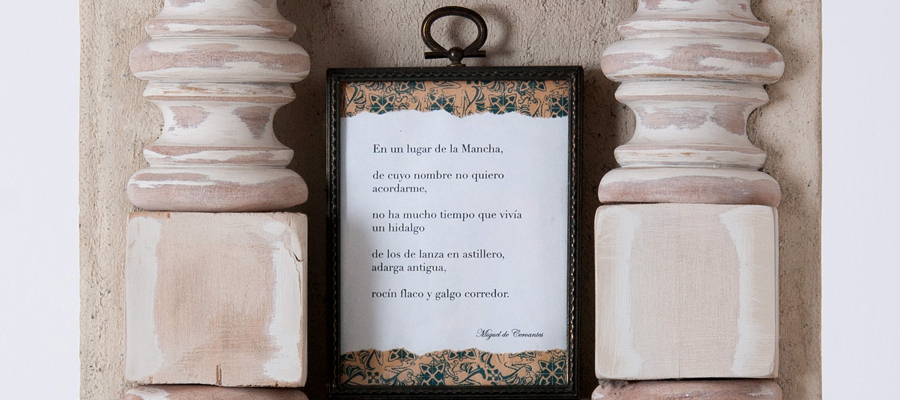 En un lugar de la Mancha,
de cuyo nombre no quiero
acordarme,
no ha mucho tiempo que vivía
un hidalgo
de los de lanza en astillero,
adarga antigua,
rocín flaco y galgo corredor.
Miguel de Cervantes